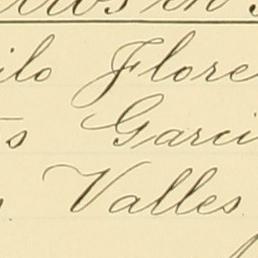 ilo Flore
s Garci
Valles